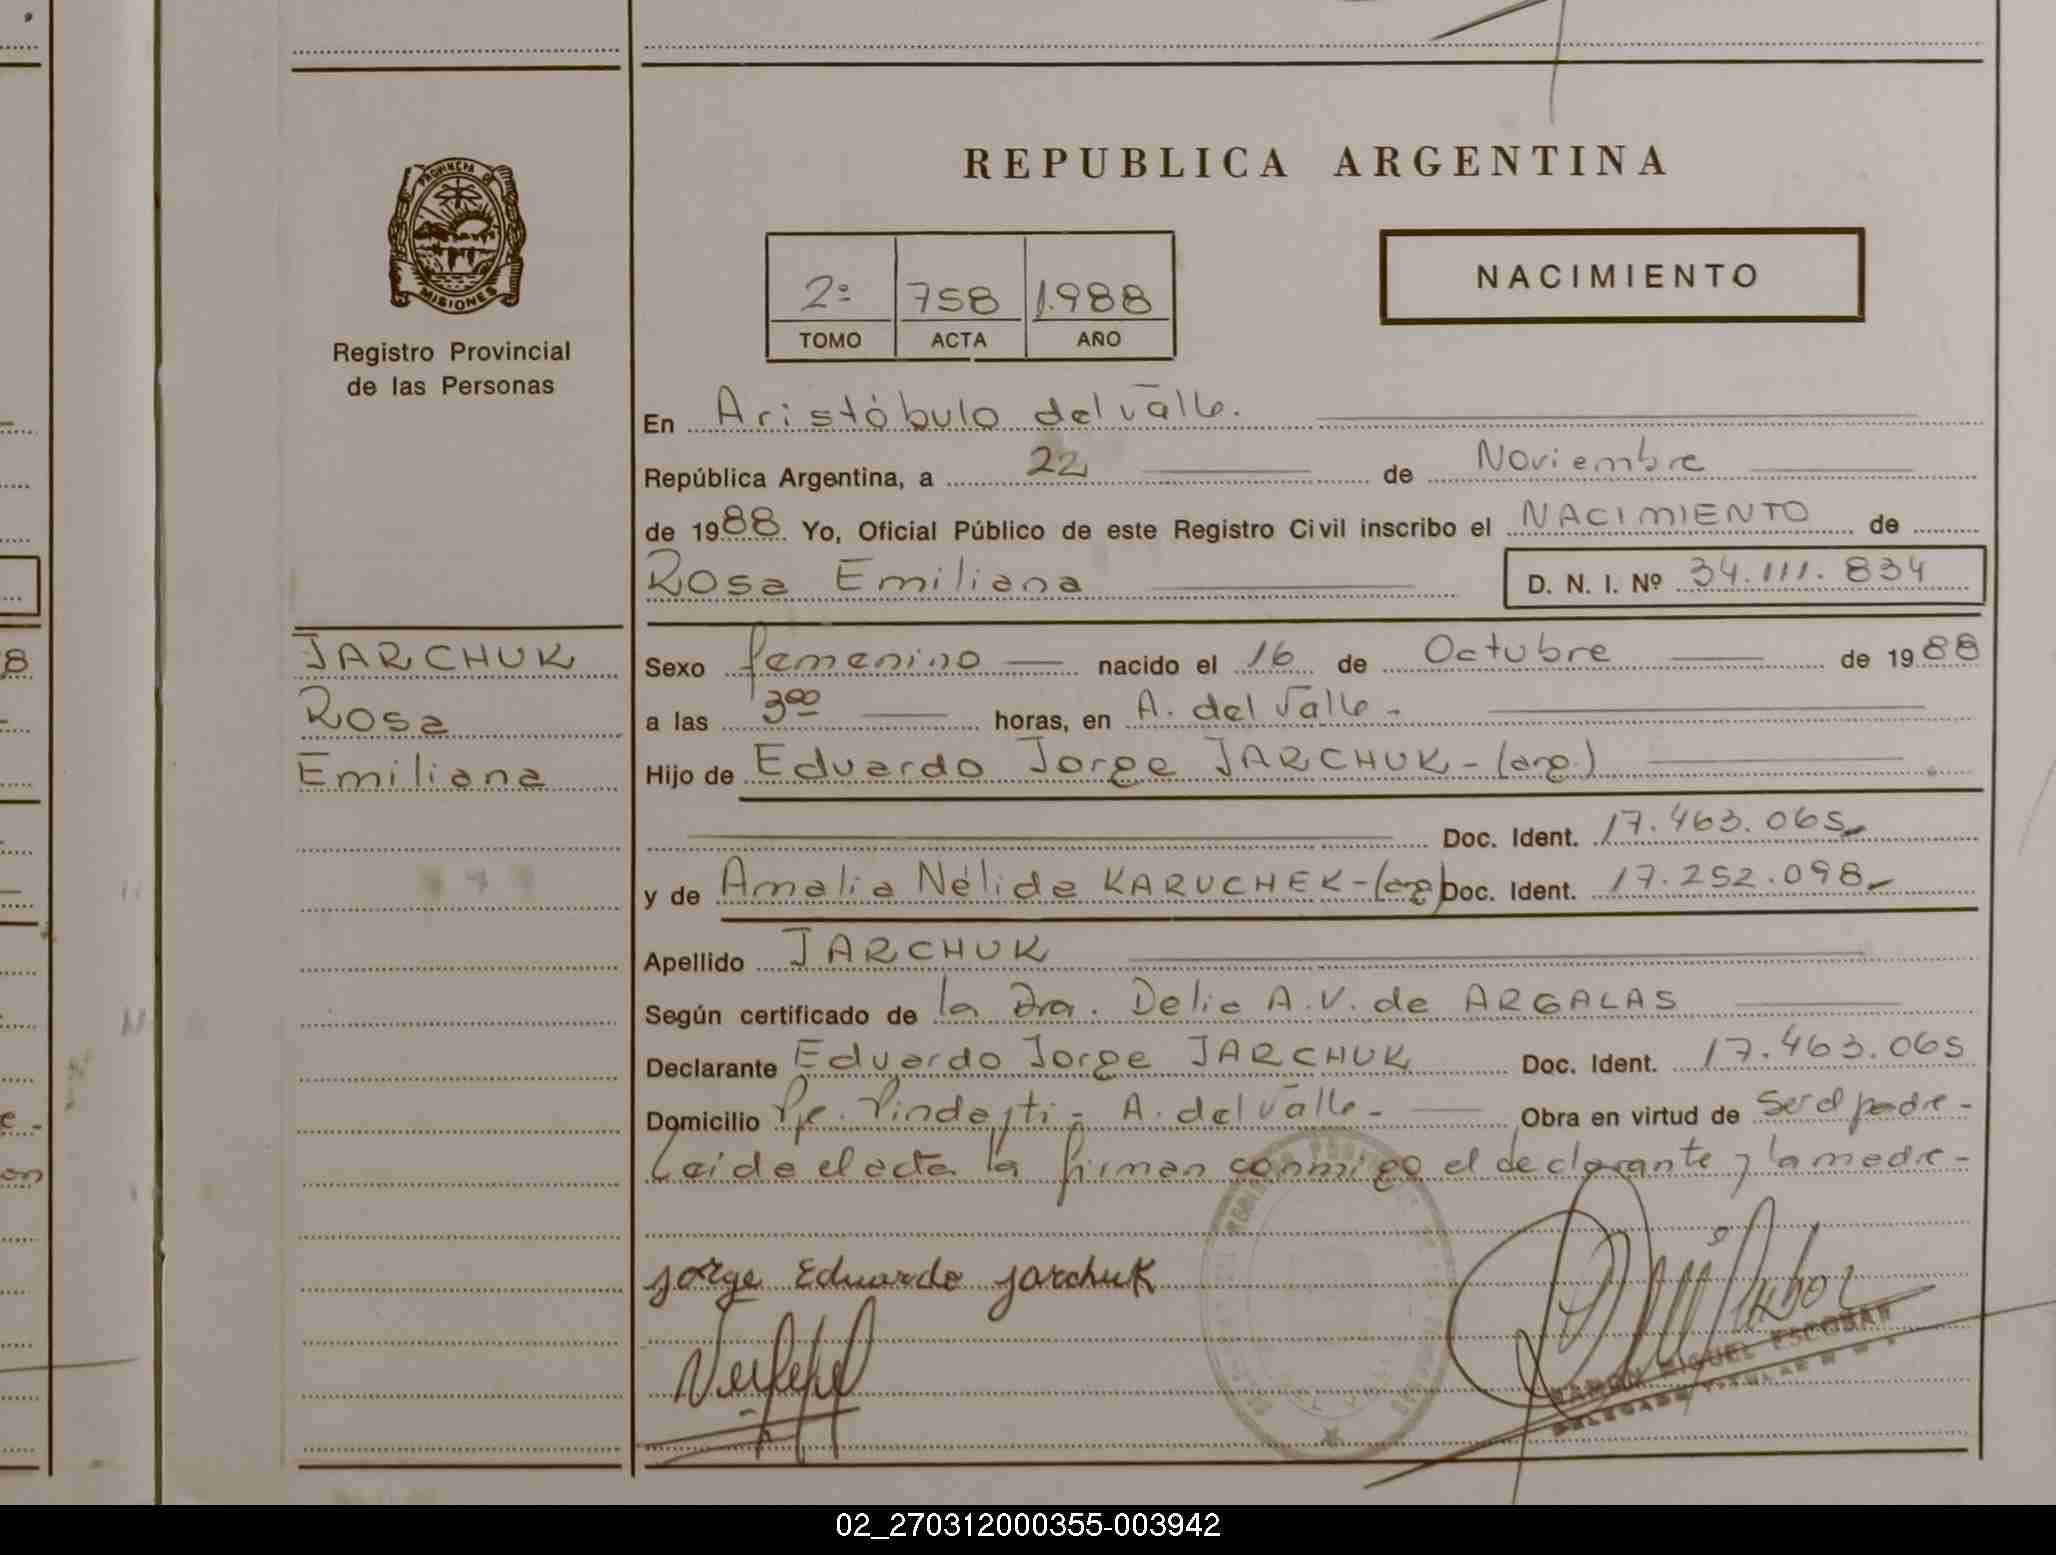 REPUBLICA ARGENTINA
PROVINCIA DE
MISIONES
Registro Provincial
de las Personas
2º 758 1.988
TOMO ACTA AÑO
NACIMIENTO
En Aristóbulo del Valle.
República Argentina, a 22 de Noviembre
de 1988 Yo, Oficial Público de este Registro Civil inscribo el NACIMIENTO de
Rosa Emiliana D. N. I. Nº 34.111.834
JARCHUK
Rosa
Emiliana
Sexo femenino nacido el 16 de Octubre de 1988
a las 3ºº horas, en A. del Valle -
Hijo de Eduardo Jorge JARCHUK - (arg.)
Doc. Ident. 17.463.065
y de Amalia Nélida KARUCHEK - (arg) Doc. Ident. 17.252.098
Apellido JARCHUK
Según certificado de la Dra. Delia A.V. de ARGALAS
Declarante Eduardo Jorge JARCHUK Doc. Ident. 17.463.065
Domicilio A. del Valle - Obra en virtud de ser el padre -
Leida el acta la firman conmigo el declarante y la madre -
Jorge Eduardo Jarchuk
RAMON MIGUEL ESCOBAR
DELEGADO TITULAR
02_270312000355-003942